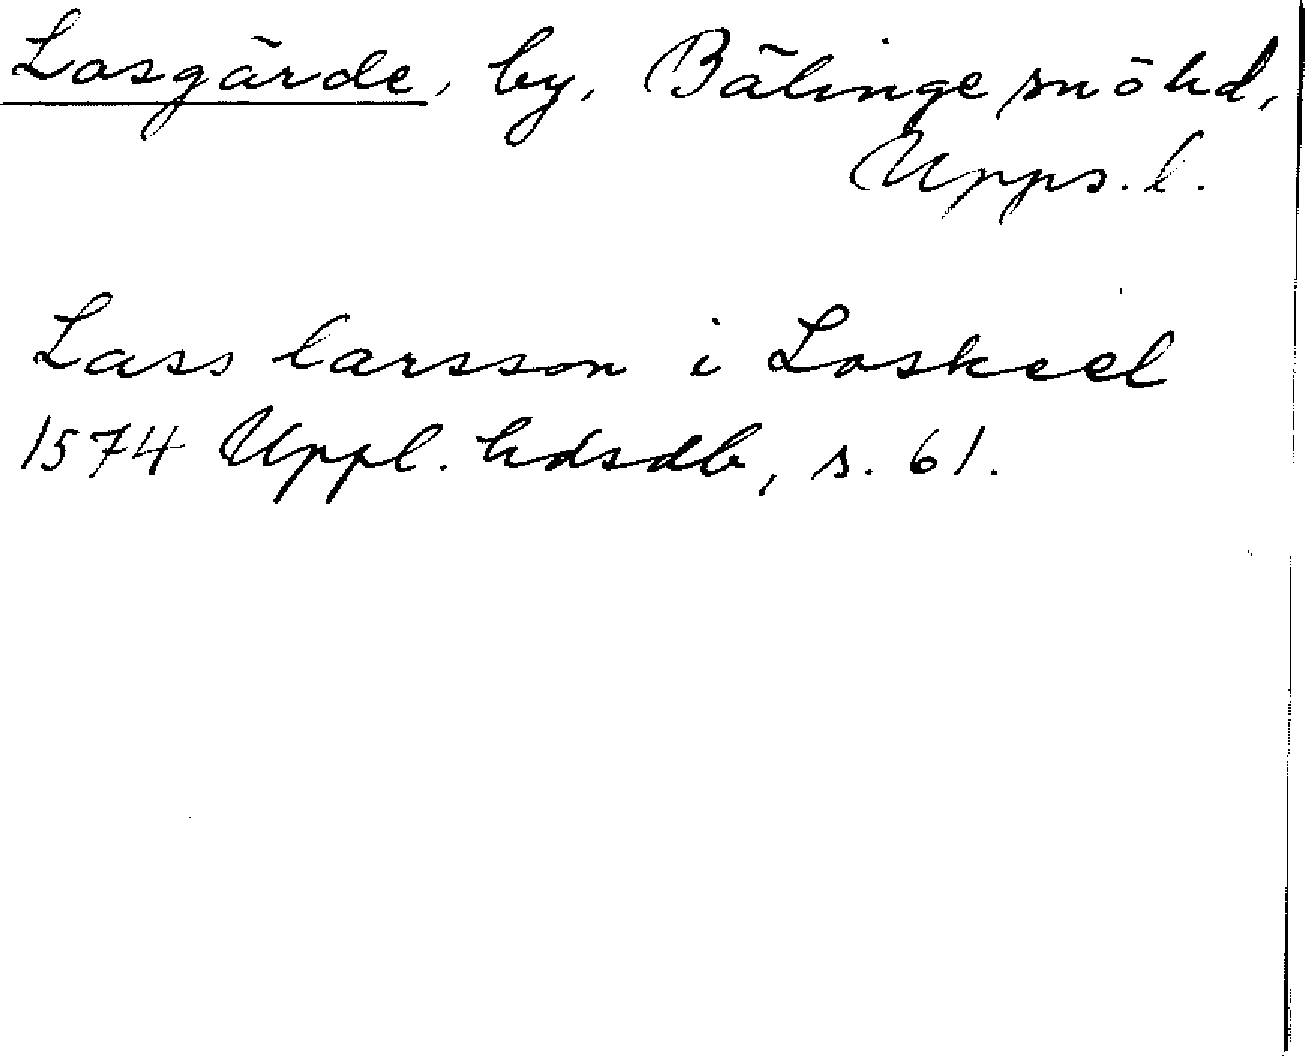 Losgärde, by, Bälinge snöhd,
Upps. l.
Lass larsson i Loskeel
1574 Uppl. hdsdb, s. 61.